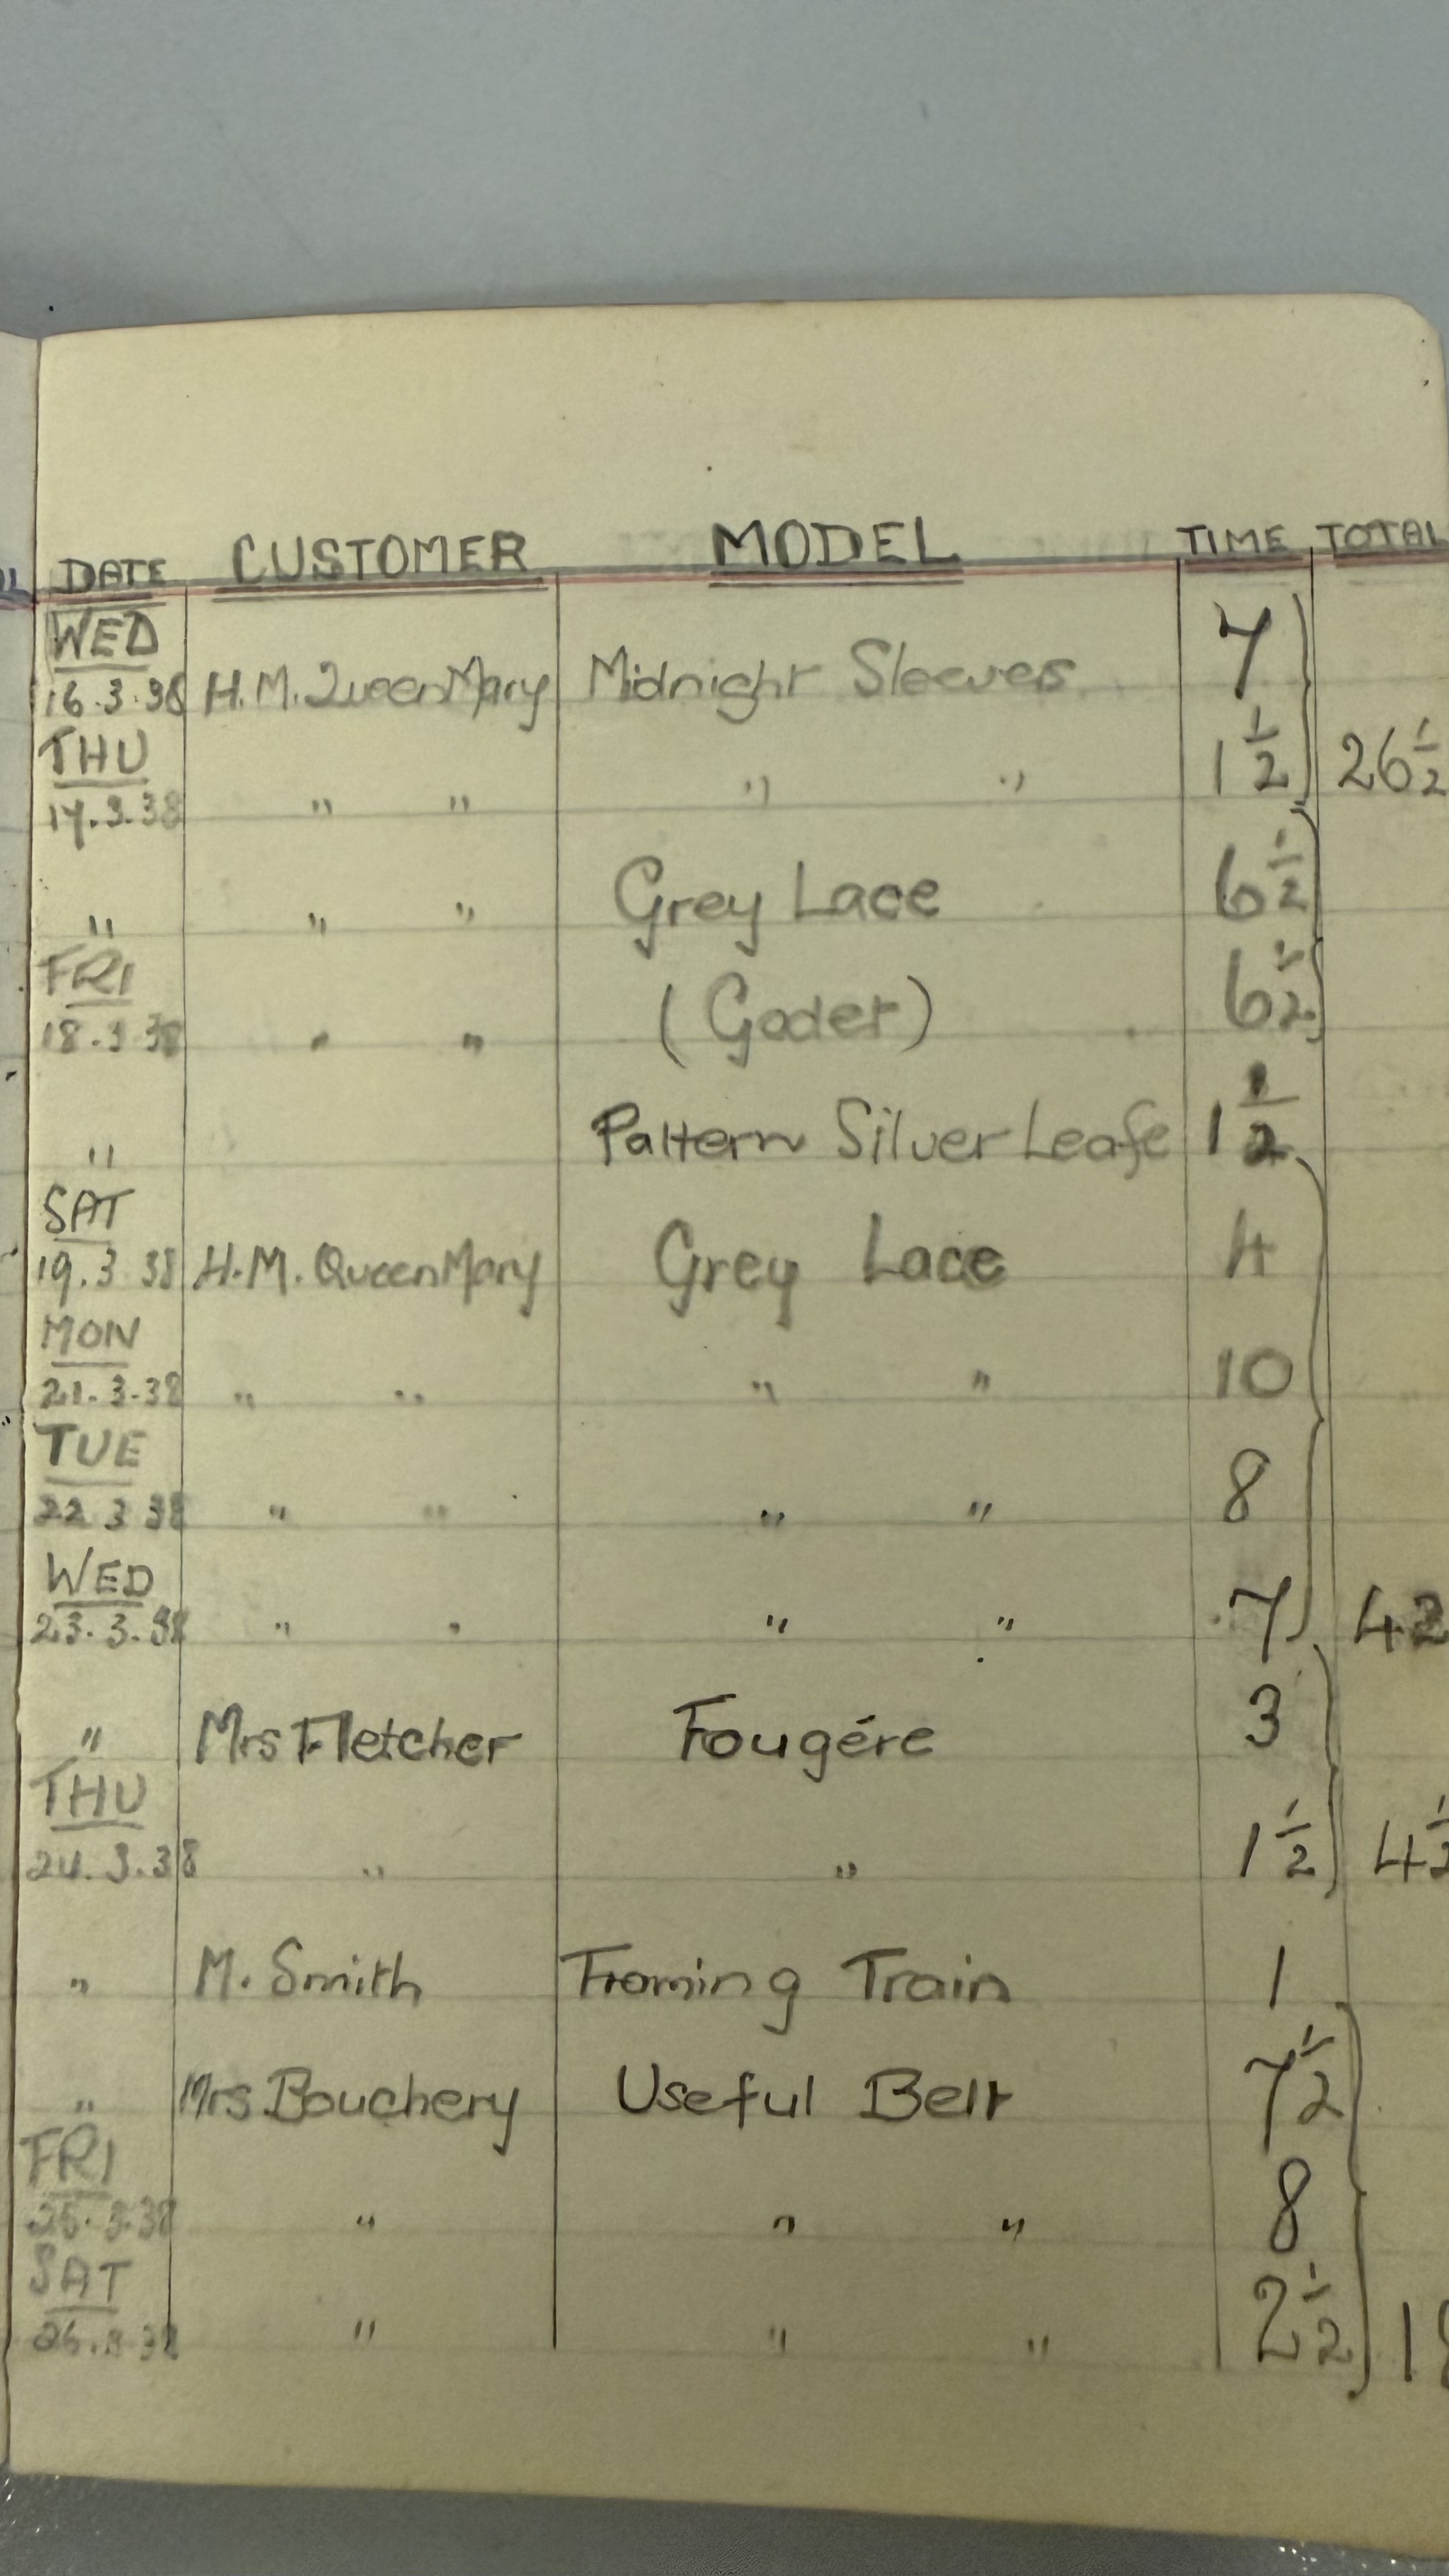 DATE CUSTOMER MODEL TIME TOTAL
WED
16.3.38 H.M. Queen Mary Midnight Sleeves 7
THU
17.3.38 " " " " 1 1/2 26 1/2
" " " Grey Lace 6 1/2
FRI
18.3.38 " " (Godet) 6 1/2
" Pattern Silver Leafe 1 1/2
SAT
19.3.38 H.M. Queen Mary Grey Lace 4
MON
21.3.38 " " " " 10
TUE
22.3.38 " " " " 8
WED
23.3.38 " " " " 7 42
" Mrs Fletcher Fougére 3
THU
24.3.38 " " 1 1/2 4 1/2
" M. Smith Froming Train 1
" Mrs Bouchery Useful Belt 7 1/2
FRI
25.3.38 " " " 8
SAT
26.3.38 " " " 2 1/2